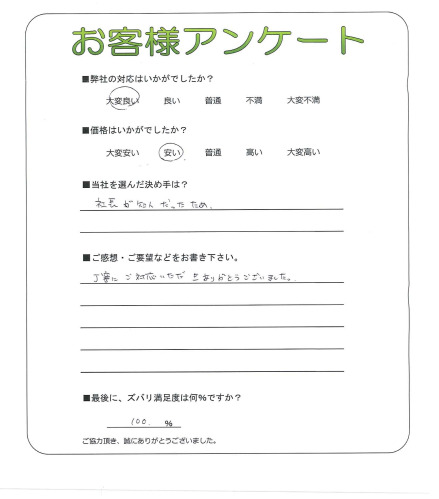 お客様アンケート
■弊社の対応はいかがでしたか？
大変良い 良い 普通 不満 大変不満
■価格はいかがでしたか？
大変安い 安い 普通 高い 大変高い
■当社を選んだ決め手は？
社長が知人だったため。
■ご感想・ご要望などをお書き下さい。
丁寧にご対応いただきありがとうございました。
■最後に、ズバリ満足度は何%ですか？
100. %
ご協力頂き、誠にありがとうございました。